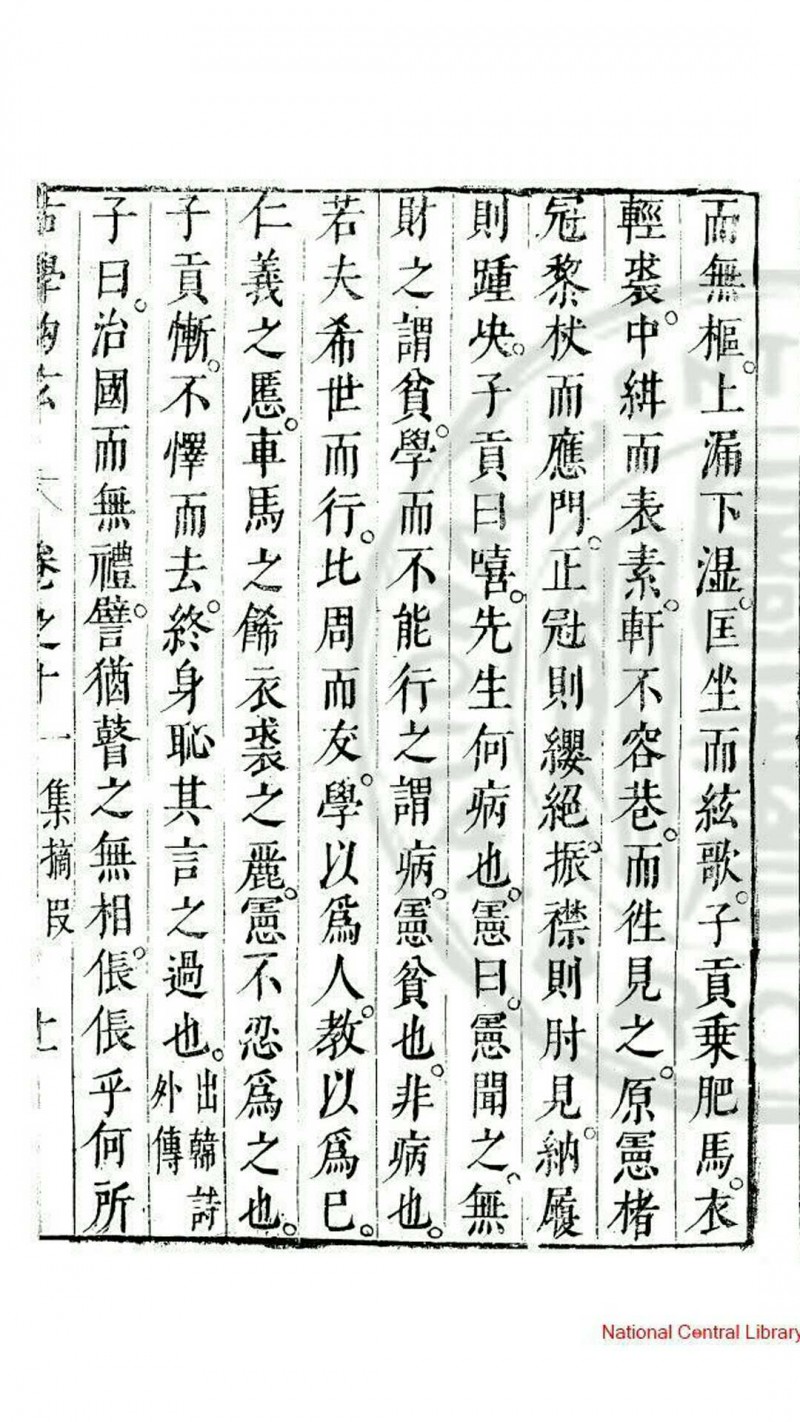 而無樞。上漏下濕。匡坐而絃歌。子貢乗肥馬。衣
輕裘。中紺而表素。軒不容巷。而徃見之。原憲楮
冠黎杖而應門。正冠則纓絕。振襟則肘見。納履
則踵决。子貢曰嘻。先生何病也。憲曰。憲聞之。無
財之謂貧。學而不能行之謂病。憲貧也。非病也。
若夫希世而行。比周而友。學以爲人。教以爲已。
仁義之慝。車馬之餙衣裘之麗。憲不忍爲之也。
子貢慚。不懌而去。終身恥其言之過也。出韓詩外傳
子曰。治國而無禮。譬猶瞽之無相。倀倀乎何所
古學 玄 卷之十一集摘叚 十一
National Central Library